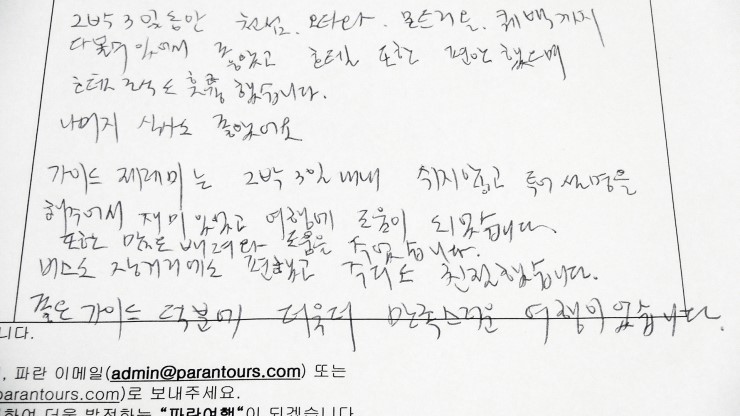 2박 3일동안 천섬. 오타와. 몬트리올. 퀘백까지
다볼수 있어서 좋았고 호텔 또한 편안했으며
호텔 조식도 훌륭했습니다.
나머지 식사도 좋았어요
가이드 제레미는 2박 3일 내내 쉬지않고 투어 설명을
해주어서 재미있었고 여행에 도움이 되었습니다.
또한 많은 배려와 도움을 주었습니다.
버스도 장거리에도 편했고 기사도 친절했습니다.
좋은 가이드 덕분에 더욱더 만족스러운 여행이었습니다.
니다.
, 파란 이메일(admin@parantours.com) 또는
parantours.com)로 보내주세요.
하여 더욱 발전하는 "파란여행"이 되겠습니다